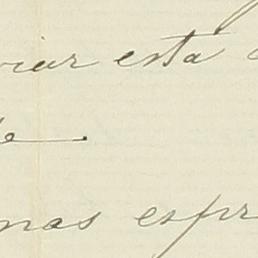 viar esta
e.
mas espr